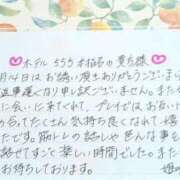 ホテル555本柏谷の貴方様
月14日はお誘い頂きありがとうございま
返事遅くなり申し訳ございません。また
に会いに来てくれて、プレイではお互い
らしてたくさん気持ち良くなれて嬉
たです。筋トレの話しや色んな事も
話せてすごく楽しい時間でした。また
お待ちしております。